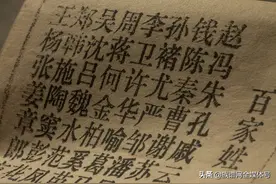 百家姓
赵钱孙李周吴郑王
冯陈褚卫蒋沈韩杨
朱秦尤许何吕施张
孔曹严华金魏陶姜
戚谢邹喻柏水窦章
云苏潘葛奚范彭郎